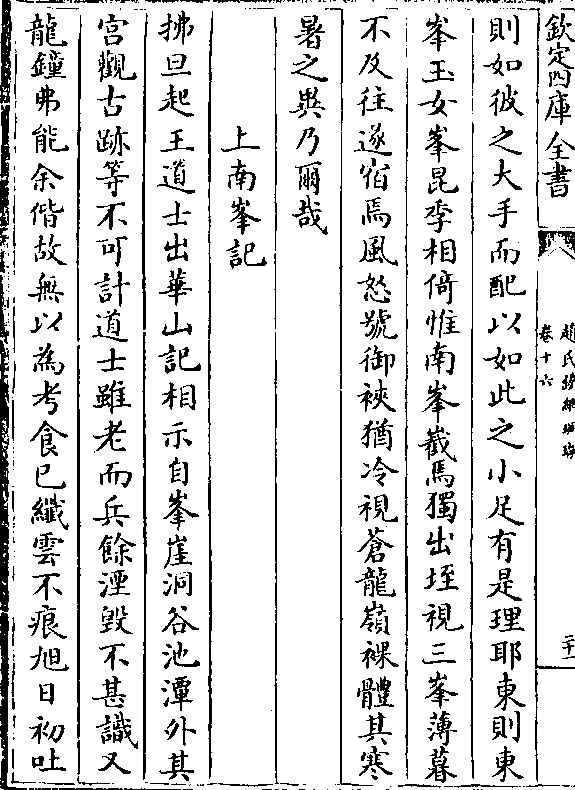 欽定四庫全書
趙氏鐵網珊瑚
卷十六
二十一
則如彼之大手而配以如此之小足有是理耶東則東
峯玉女峯昆季相倚惟南峯巀焉獨出垤視三峯薄暮
不及往遂宿焉風怒號御裌猶冷視蒼龍嶺裸體其寒
暑之異乃爾哉
上南峯記
拂旦起王道士出華山記相示自峯崖洞谷池潭外其
宮觀古跡等不可計道士雖老而兵餘湮毀不甚識又
龍鐘弗能余偕故無以為考食已纖雲不痕旭日初吐